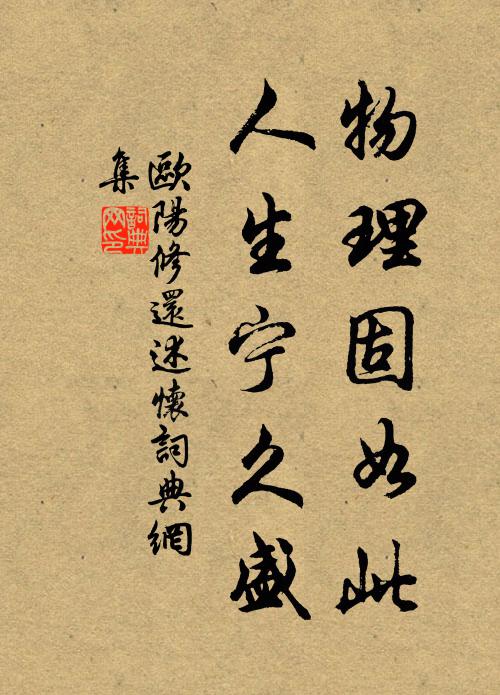 物理固如此
人生宁久盛
歐陽修還述懷詞典網
集
詞典网印